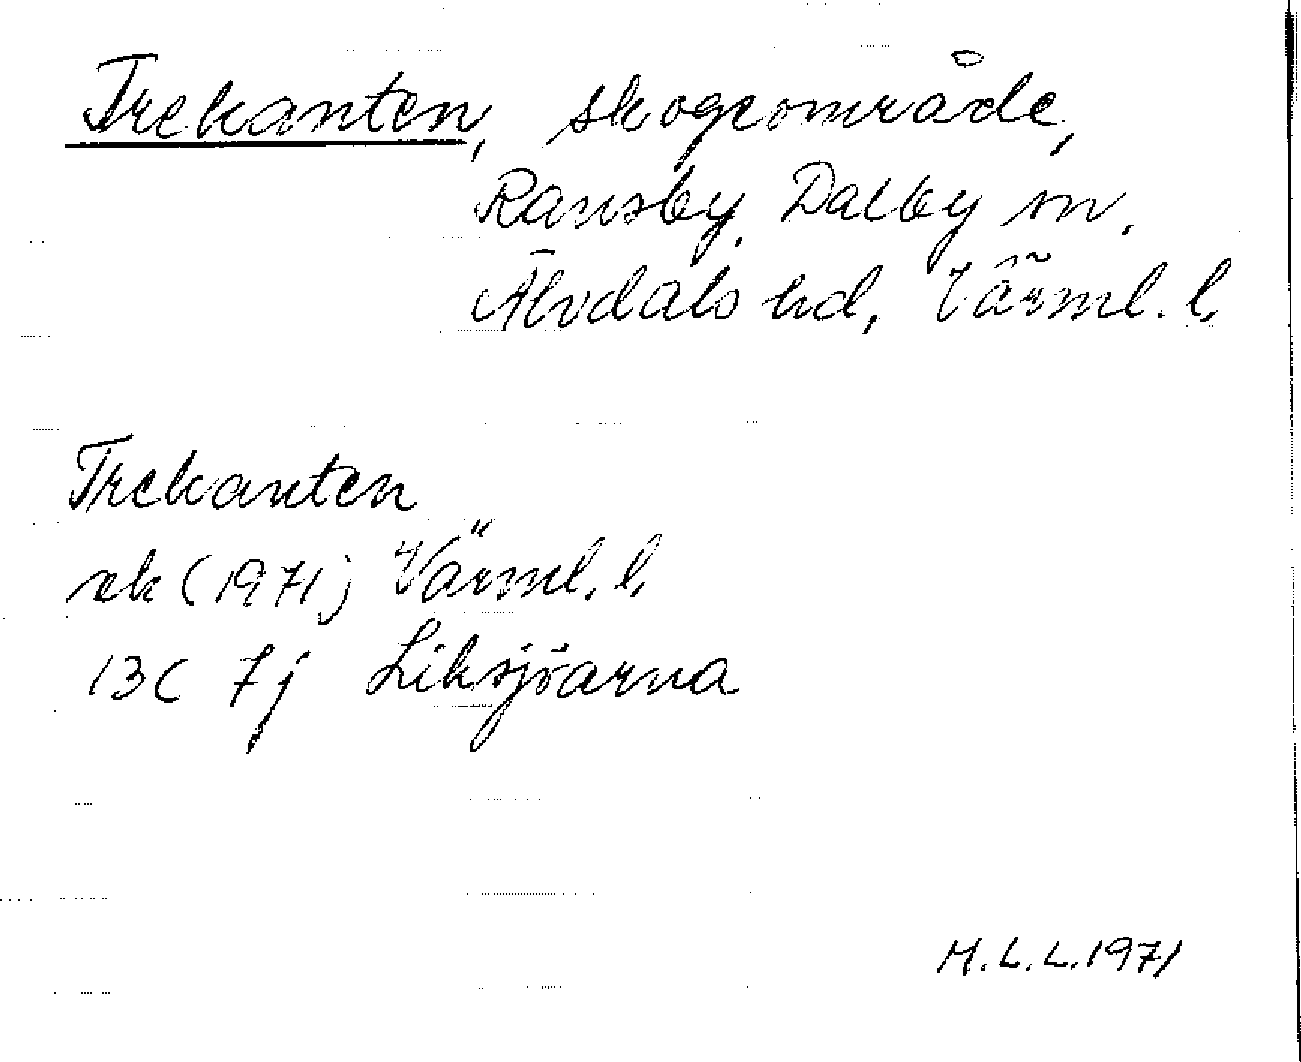 Trekanten, skogsområde,
Ransby, Dalby sn,
Älvdals hd, Värml. l.
Trekanten
ek (1971) Värml. l.
13C 7j Liksjöarna
M.L.L. 1971